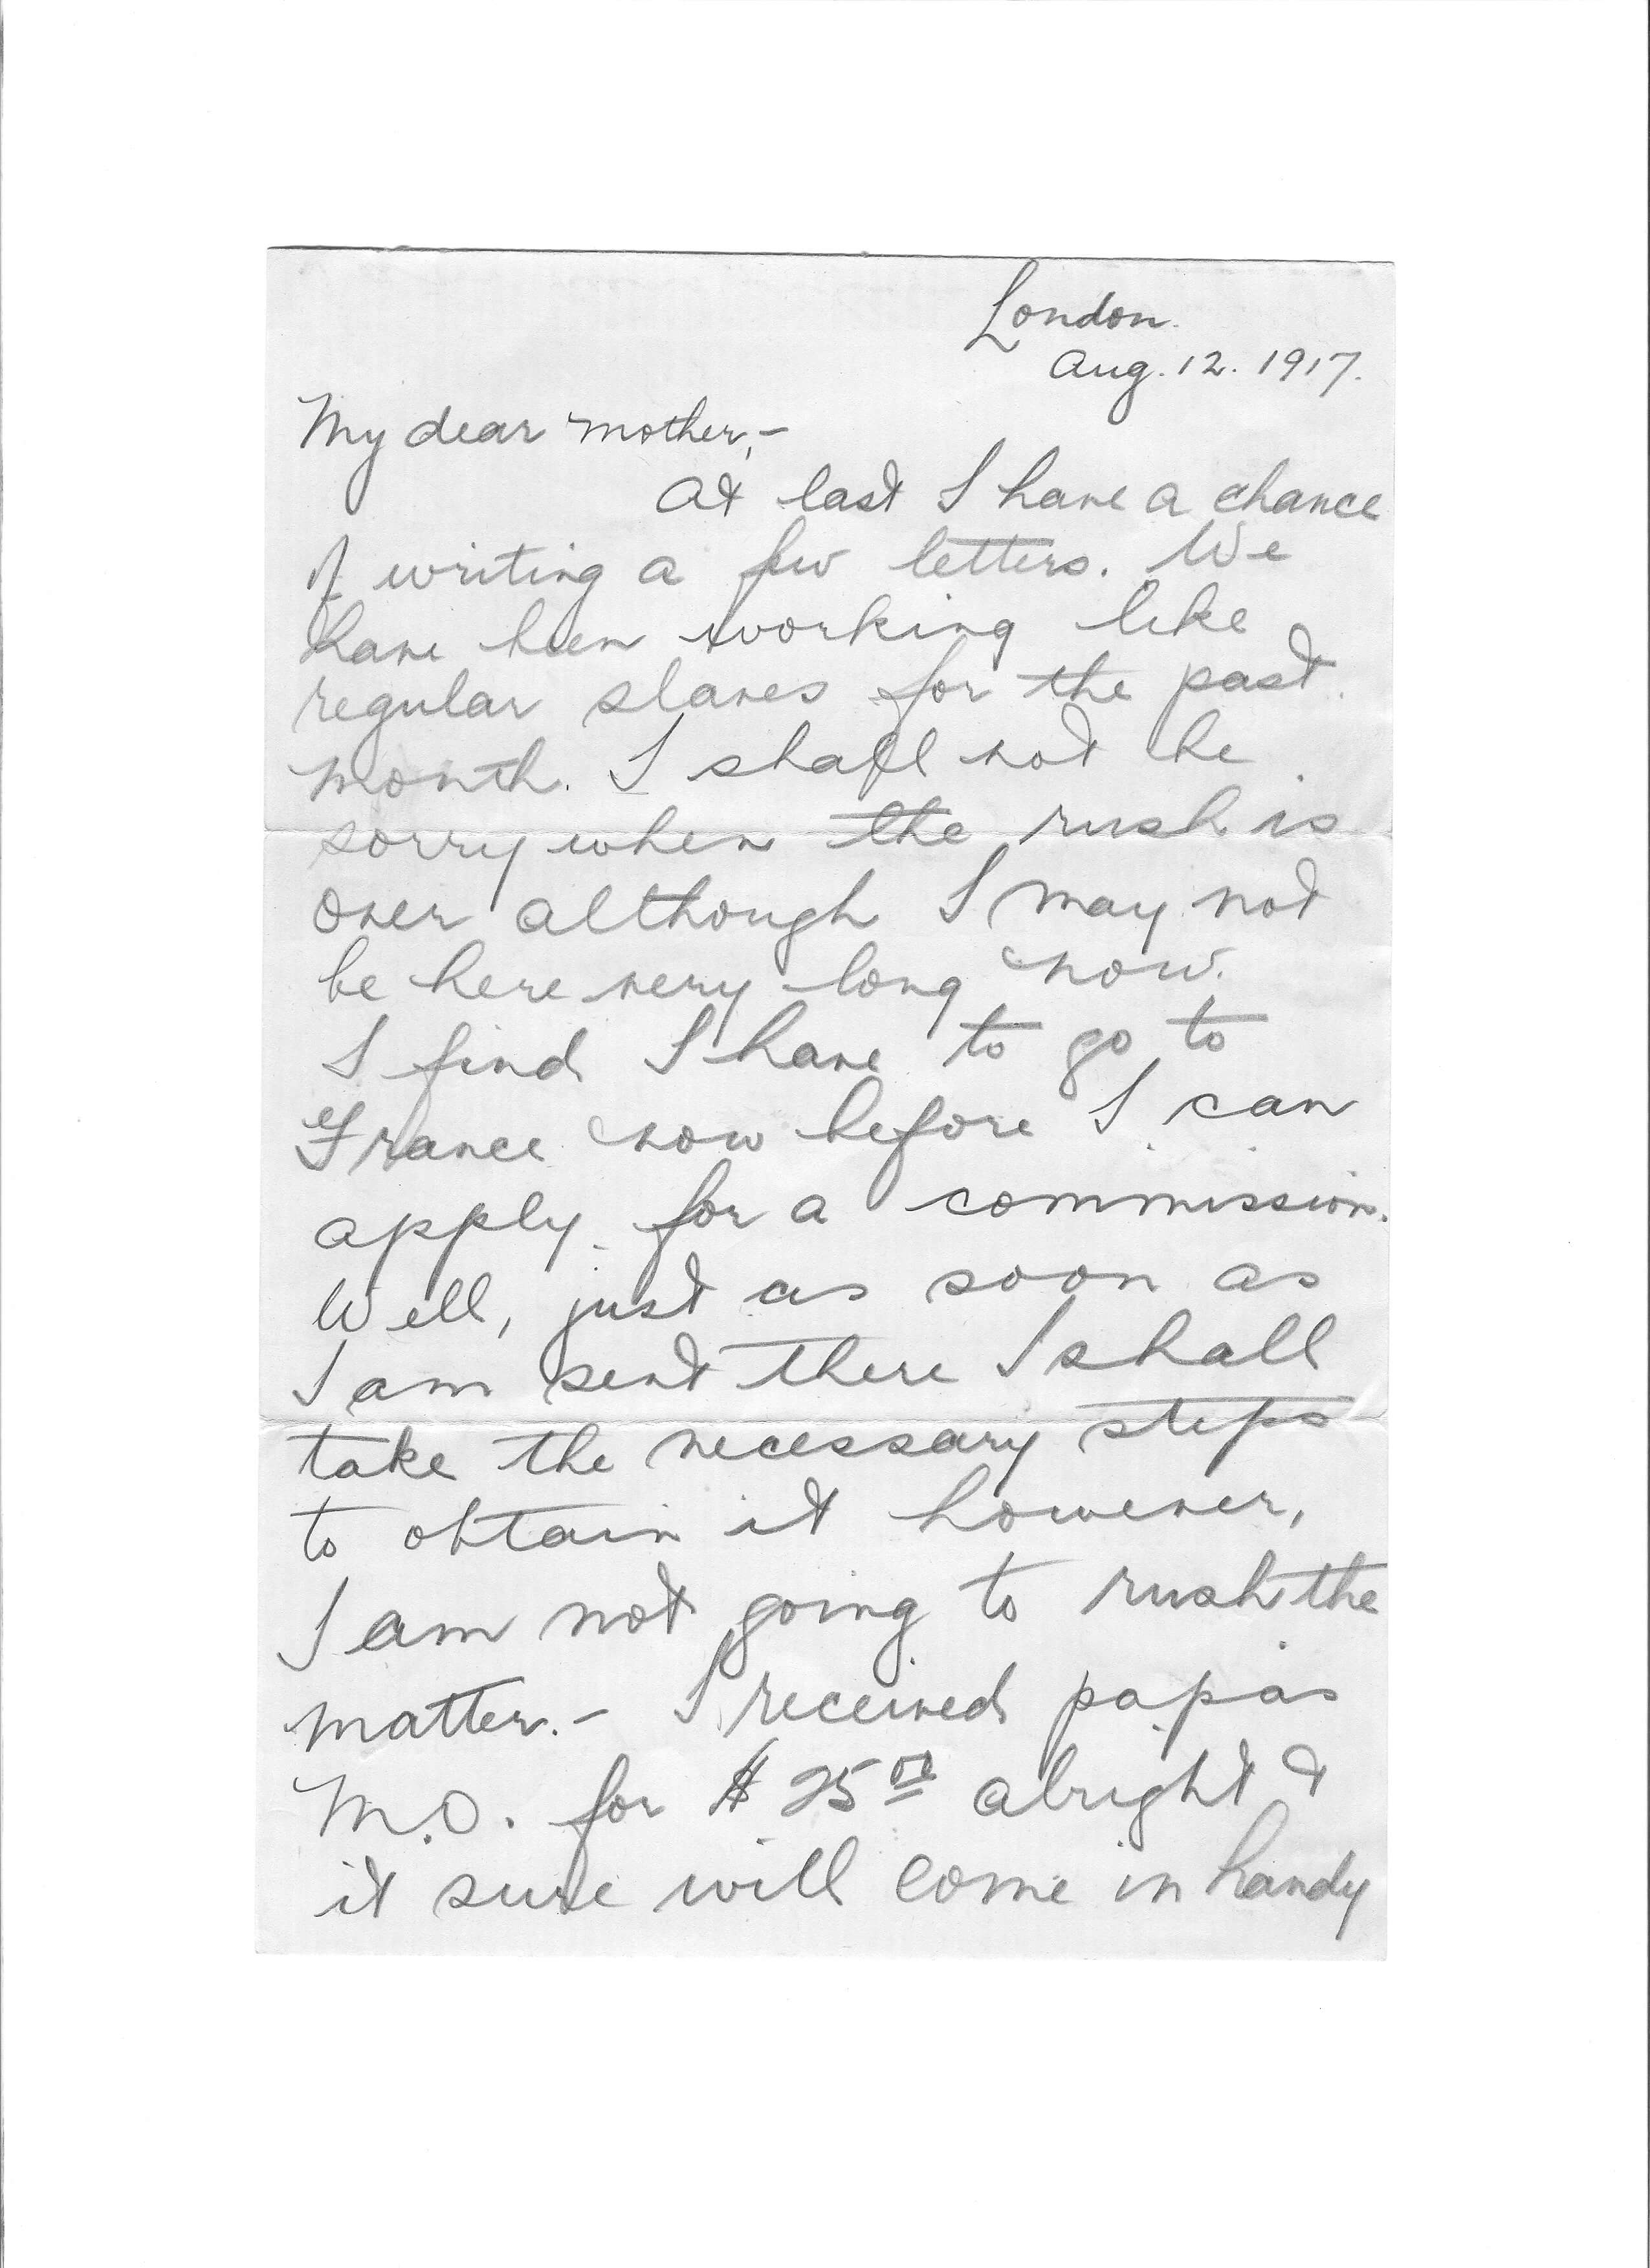 London.
Aug. 12. 1917.
My dear Mother,-
At last I have a chance
of writing a few letters. We
have been working like
regular slaves for the past
month. I shall not be
sorry when the rush is
over although I may not
be here very long now.
I find I have to go to
France now before I can
apply for a commission.
Well, just as soon as
I am sent there I shall
take the necessary steps
to obtain it however,
I am not going to rush the
matter.- I received papas
M.O. for $25 00 alright &
it sure will come in handy